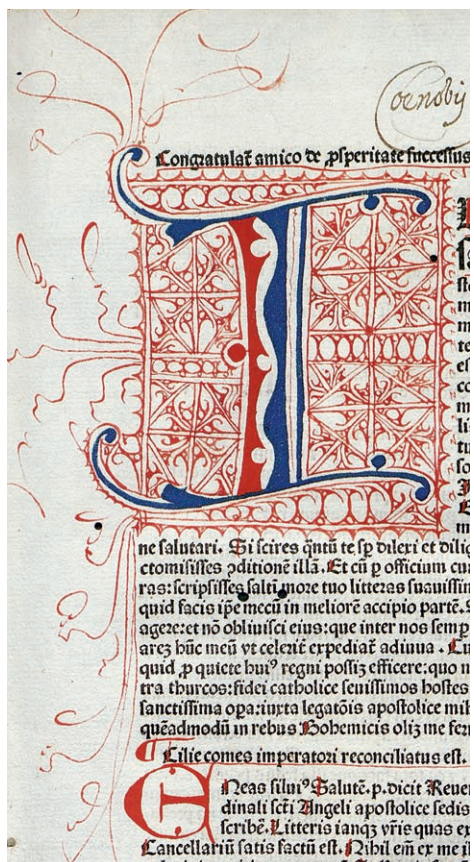 Coenobÿ
Congratulat̄ amico de ꝓsperitate successus
I
m
m
te
es
co
m
li
tu
so
m
ne salutari. Si scires q̄ntū te sꝑ dilexi et dilig
ctomisisses ꝯditionē illā. Et cū ꝑ officium cur
ras: scripsisses saltū more tuo litteras suauissim
quid facis ip̄e mecū in meliorē accipio partē.
agere: et nō obliuisci eius: que inter nos semp
arez hūc meū vt celerit̄ expediat̄ adiuua. Cu
quid ꝓ quiete huiꝰ regni possiz efficere: quo m
tra thurcos: fidei catholice seuissimos hostes
sanctissima oꝑa: iuxta legatōis apostolice mih
quēadmodū in rebus Bohemicis oliz me feri
¶ Cilie comes imperatori reconciliatus est.
E Neas siluiꝰ Salutē. p. dicit Reuer
dinali scti Angeli apostolice sedis
scribē. Litteris ianqz vr̄ie quas ex
Cancellariū satis factū est. Nihil eī̄ ex me p